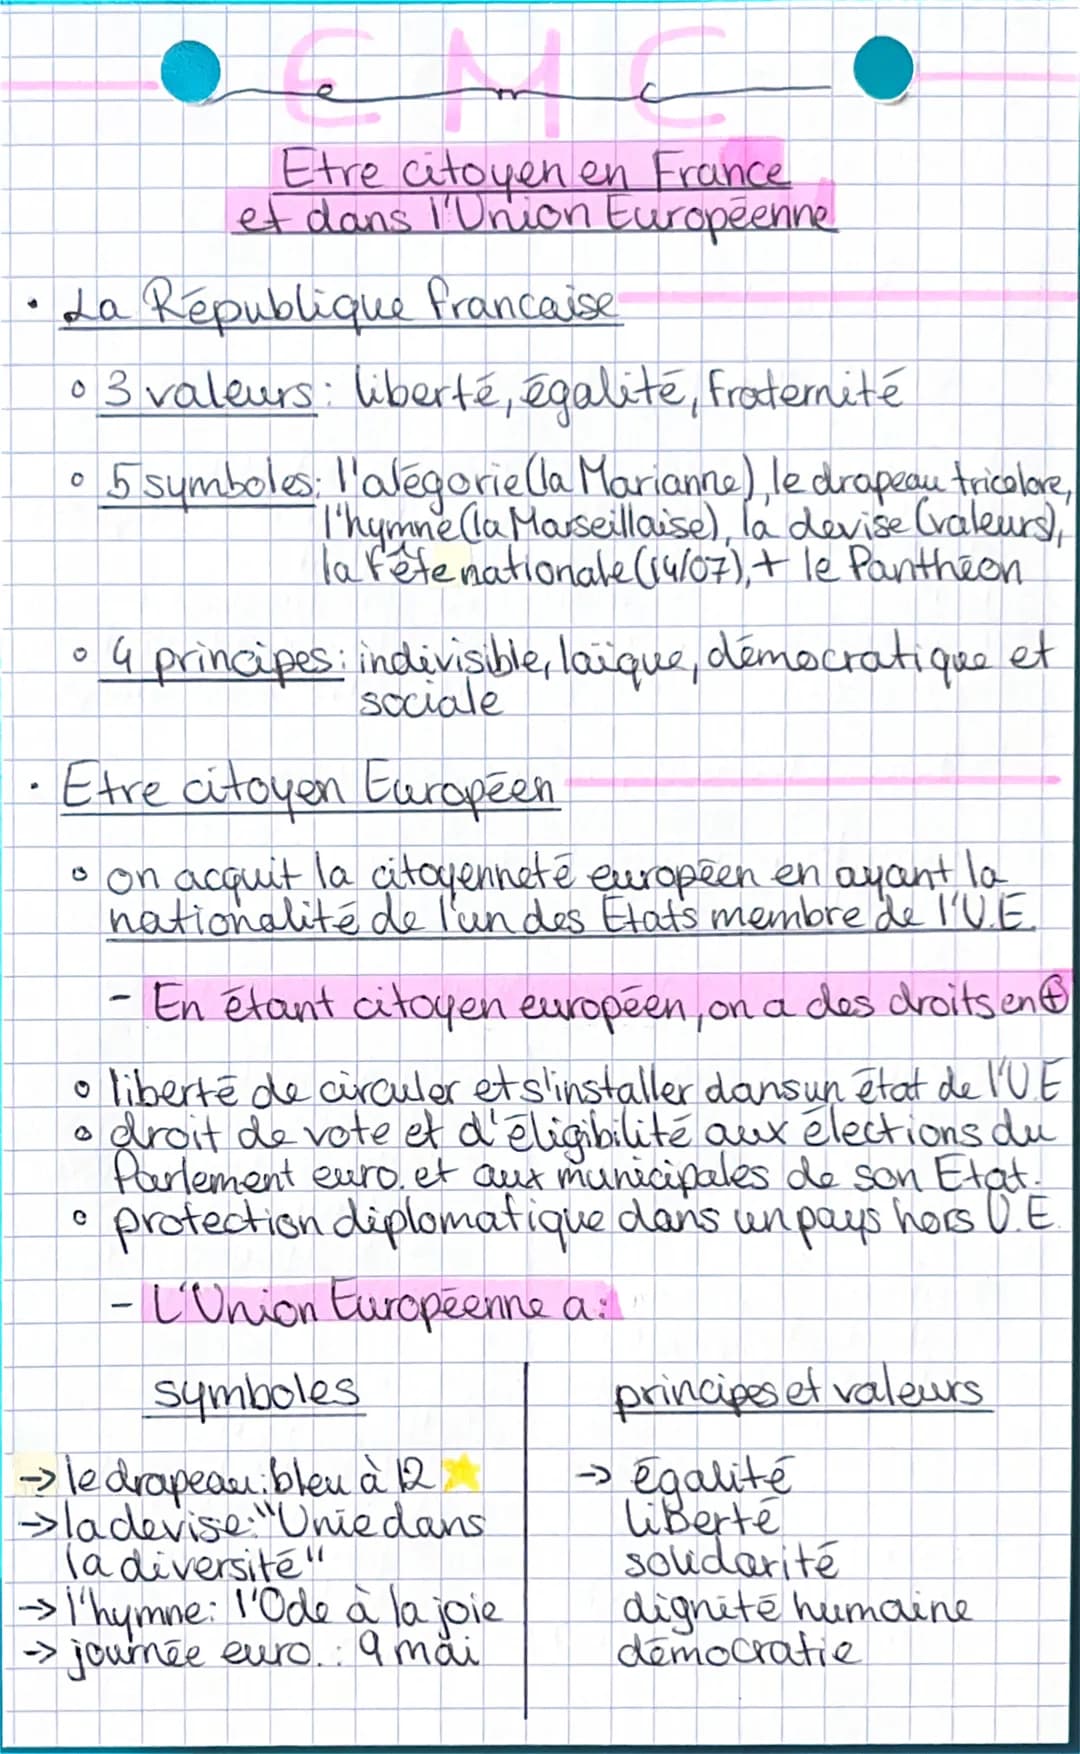 EMC
e m c
Etre citoyen en France
et dans l'Union Européenne
• La République francaise
◦ 3 valeurs : liberté, égalité, fraternité
◦ 5 symboles: l'alégorie (la Marianne), le drapeau tricolore,
l'hymne (la Marseillaise), la devise (valeurs),
la fête nationale (14/07), + le Panthéon
◦ 4 principes : indivisible, laïque, démocratique et
sociale
• Etre citoyen Européen
◦ on acquit la citoyenneté européen en ayant la
nationalité de l'un des Etats membre de l'U.E.
- En étant citoyen européen, on a des droits en ⊕
◦ liberté de circuler et s'installer dans un état de l'U.E
◦ droit de vote et d'éligibilité aux élections du
Parlement euro. et aux municipales de son Etat.
◦ protection diplomatique dans un pays hors U.E.
- L'Union Européenne a :
symboles
principes et valeurs
→ le drapeau : bleu à 12 ★
→ la devise : "Unie dans
la diversité"
→ l'hymne : l'Ode à la joie
→ journée euro. : 9 mai
→ égalité
liberté
solidarité
dignité humaine
démocratie